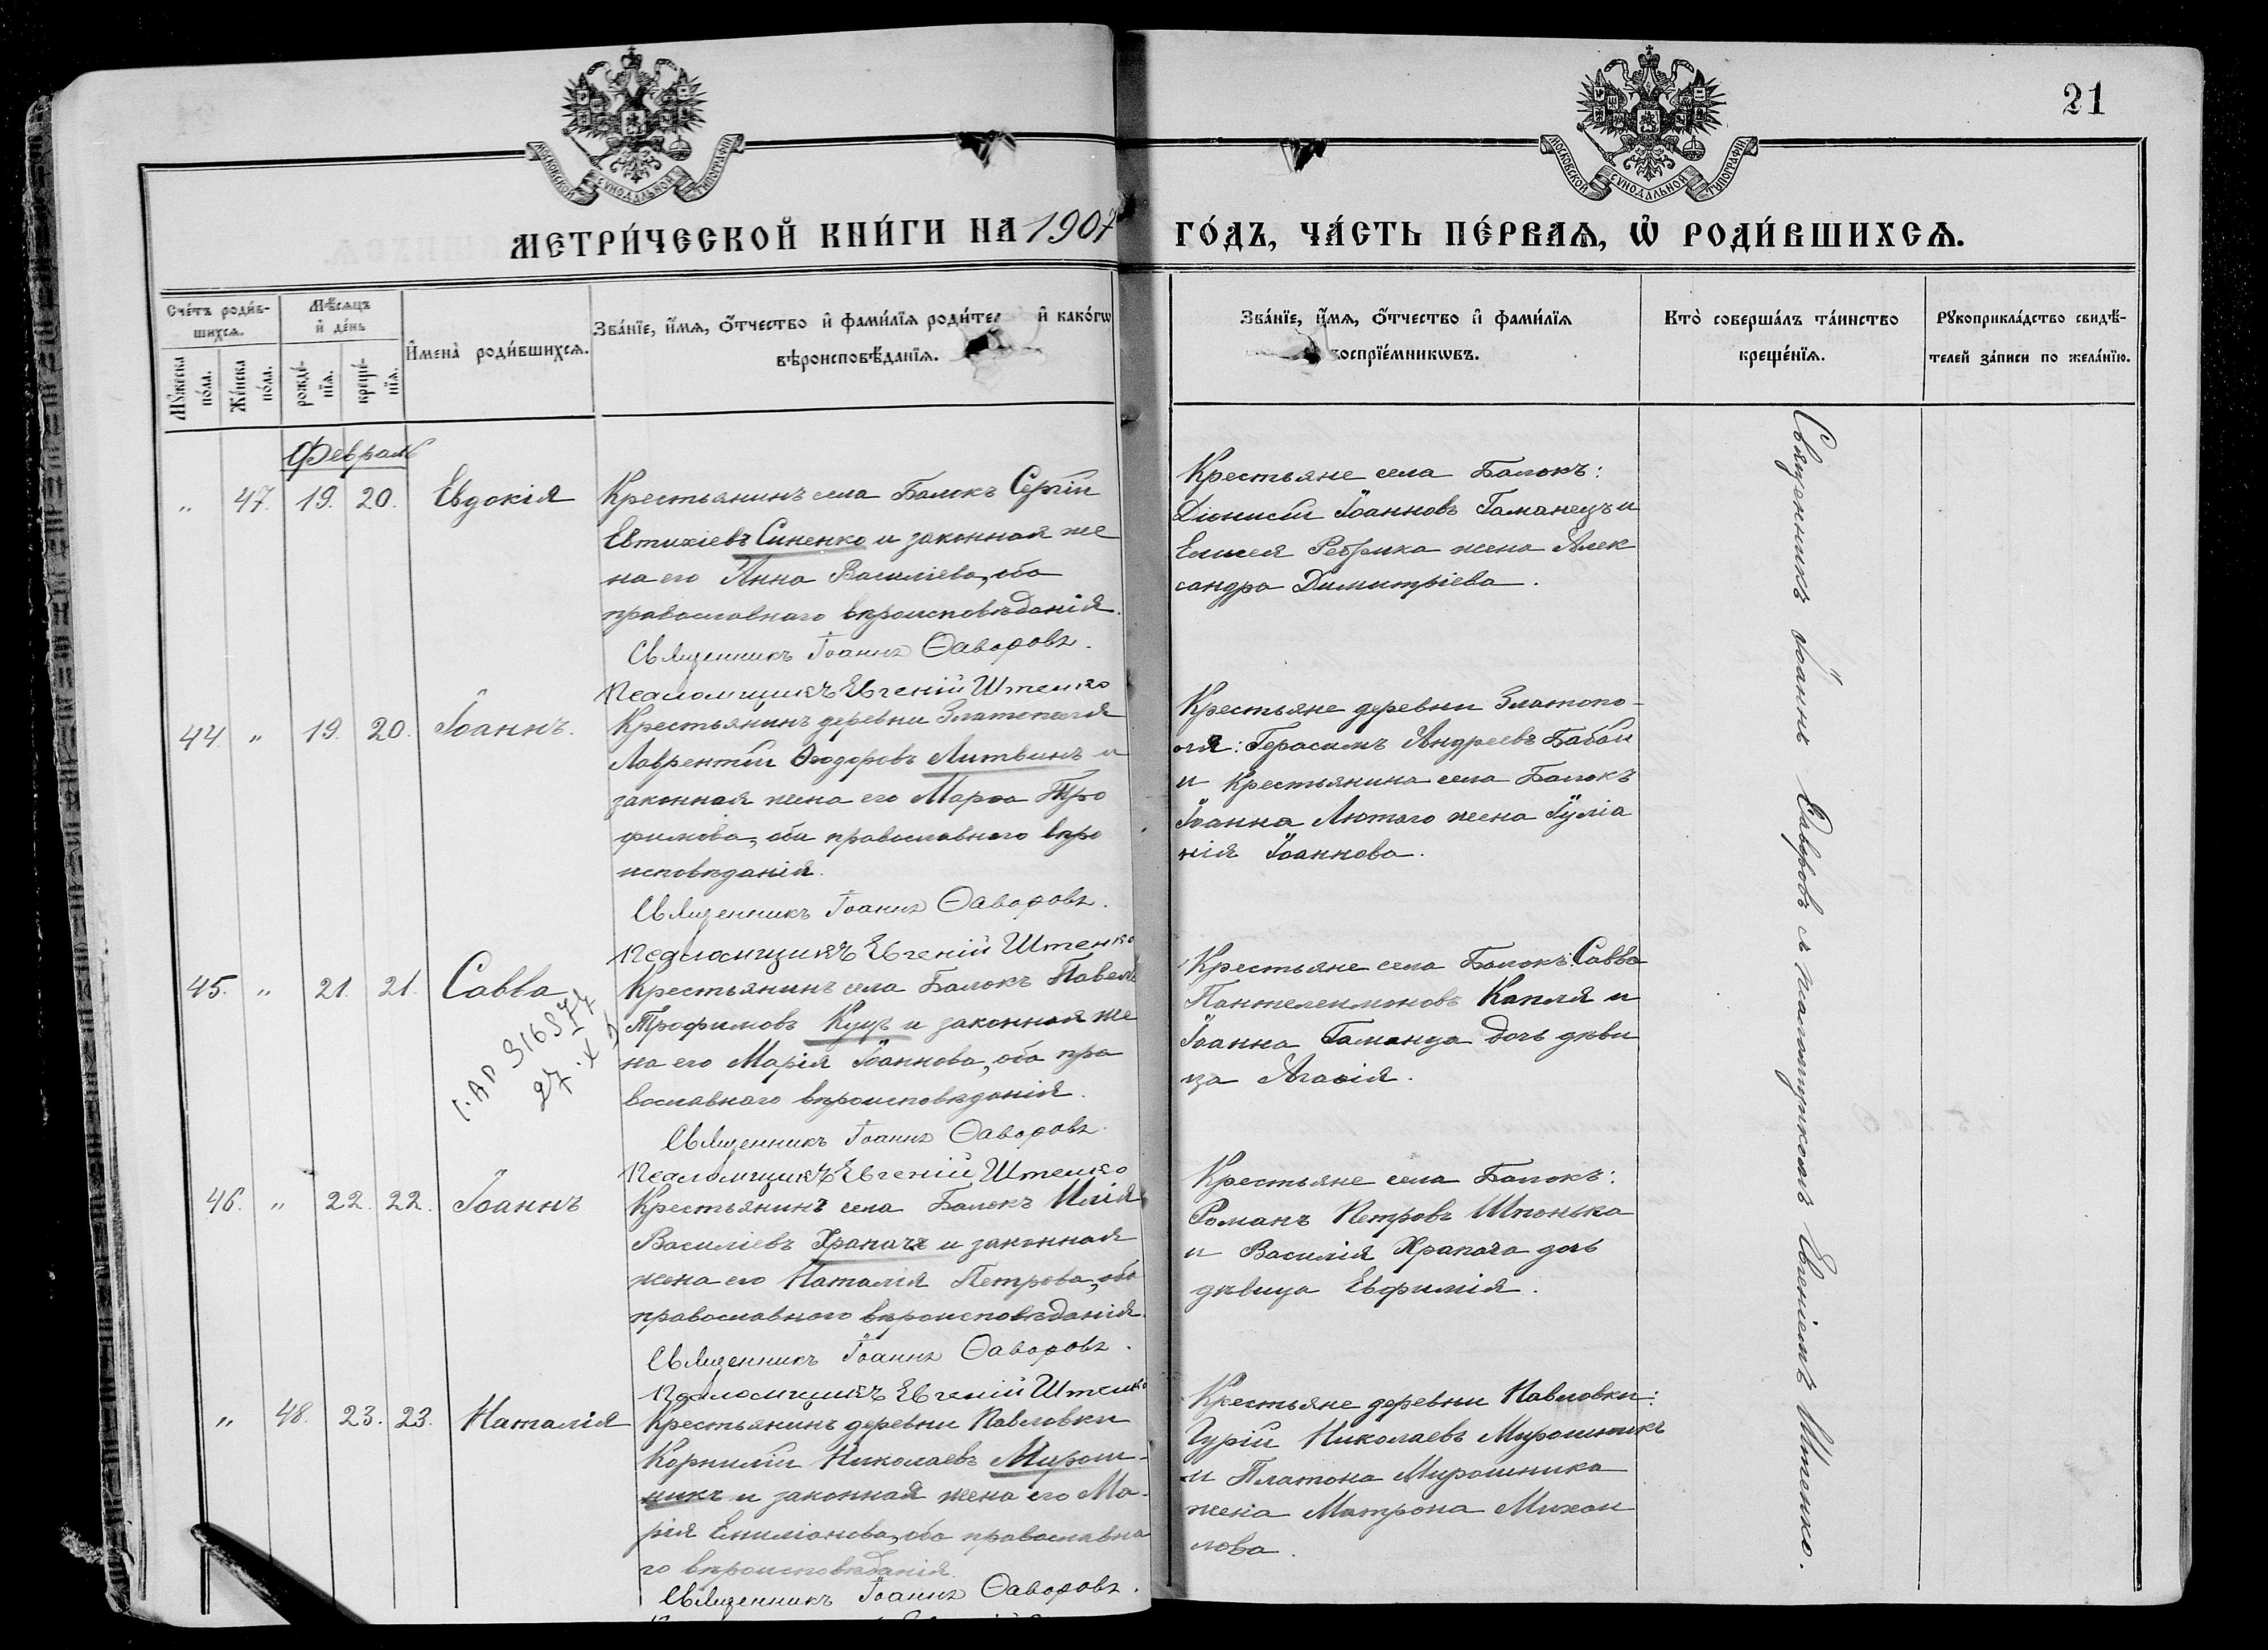 21
МОСКОВСКОЙ СѴНОДАЛЬНОЙ ТИПОГРАФІИ
МОСКОВСКОЙ СѴНОДАЛЬНОЙ ТИПОГРАФІИ
МЕТРИ́ЧЕСКОЙ КНИ́ГИ НА 1907
ГО́ДЪ, ЧА́СТЬ ПЕ́РВАѦ, Ѽ РОДИ́ВШИХСѦ.
Сче́тъ роди́в-
шихсѧ.
Мꙋжеска по́ла.
Же́нска по́ла.
Мѣ́сѧцъ
и҆ де́нь
рожде́-
нїѧ.
креще́-
нїѧ.
И҆мена̀ роди́вшихсѧ.
Зва́нїе, и҆́мѧ, ѻ҆́тчество и҆ фами́лїѧ роди́те и҆ како́гѡ
вѣроисповѣ́данїѧ.
Зва́нїе, и҆́мѧ, ѻ҆́тчество и҆ фами́лїѧ
воспрїе́мникѡвъ.
Кто̀ соверша́лъ та́инство
креще́нїѧ.
Рꙋкоприкла́дство свидѣ́-
телей за́писи по жела́нїю.
Февраль
" 47. 19. 20. Евдокія
Крестьянинъ села Балокъ Сергій
Евтихіевъ Синенко и законная же
на его Анна Василіева, оба
православнаго вѣроисповѣданія.
Священникъ Іоаннъ Ѳаворовъ.
Псаломщикъ Евгеній Штенко
Крестьяне села Балокъ:
Діонисій Іоанновъ Гаманецъ и
Елисея Ребрика жена Алек
сандра Димитріева.
44. " 19. 20. Іоаннъ.
Крестьянинъ деревни Златополя
Лаврентій Ѳеодоровъ Литвинъ и
законная жена его Марѳа Тро
фимова, оба православнаго вѣро
исповѣданія.
Священникъ Іоаннъ Ѳаворовъ.
Псаломщикъ Евгеній Штенко
Крестьяне деревни Златопо-
ля: Герасимъ Андреевъ Бабай
и крестьянина села Балокъ
Іоанна Лютого жена Іуліа
нія Іоаннова.
45. " 21. 21. Савва
Крестьянинъ села Балокъ Павелъ
Трофимовъ Куцъ и законная же
на его Марія Іоаннова, оба пра
вославнаго вѣроисповѣданія.
Священникъ Іоаннъ Ѳаворовъ.
Псаломщикъ Евгеній Штенко
Крестьяне села Балокъ: Савва
Пантелеимоновъ Капля и
Іоанна Гаманца дочь дѣви
ца Агаѳія.
46. " 22. 22. Іоаннъ
Крестьянинъ села Балокъ Илія
Василіевъ Храпачъ и законная
жена его Наталія Петрова, оба
православнаго вѣроисповѣданія.
Священникъ Іоаннъ Ѳаворовъ.
Псаломщикъ Евгеній Штенко
Крестьяне села Балокъ:
Романъ Петровъ Шпонька
и Василія Храпача дочь
дѣвица Евфимія.
" 48. 23. 23. Наталія
Крестьянинъ деревни Павловки
Корнилій Николаевъ Мирош-
никъ и законная жена его Ма-
рія Емиліанова, оба православна
го вѣроисповѣданія.
Священникъ Іоаннъ Ѳаворовъ.
Крестьяне деревни Павловки:
Гурій Николаевъ Мирошникъ
и Платона Мирошника
жена Матрона Михаи
лова.
Священникъ Іоаннъ Ѳаворовъ съ псаломщикомъ Евгеніемъ Штенко.